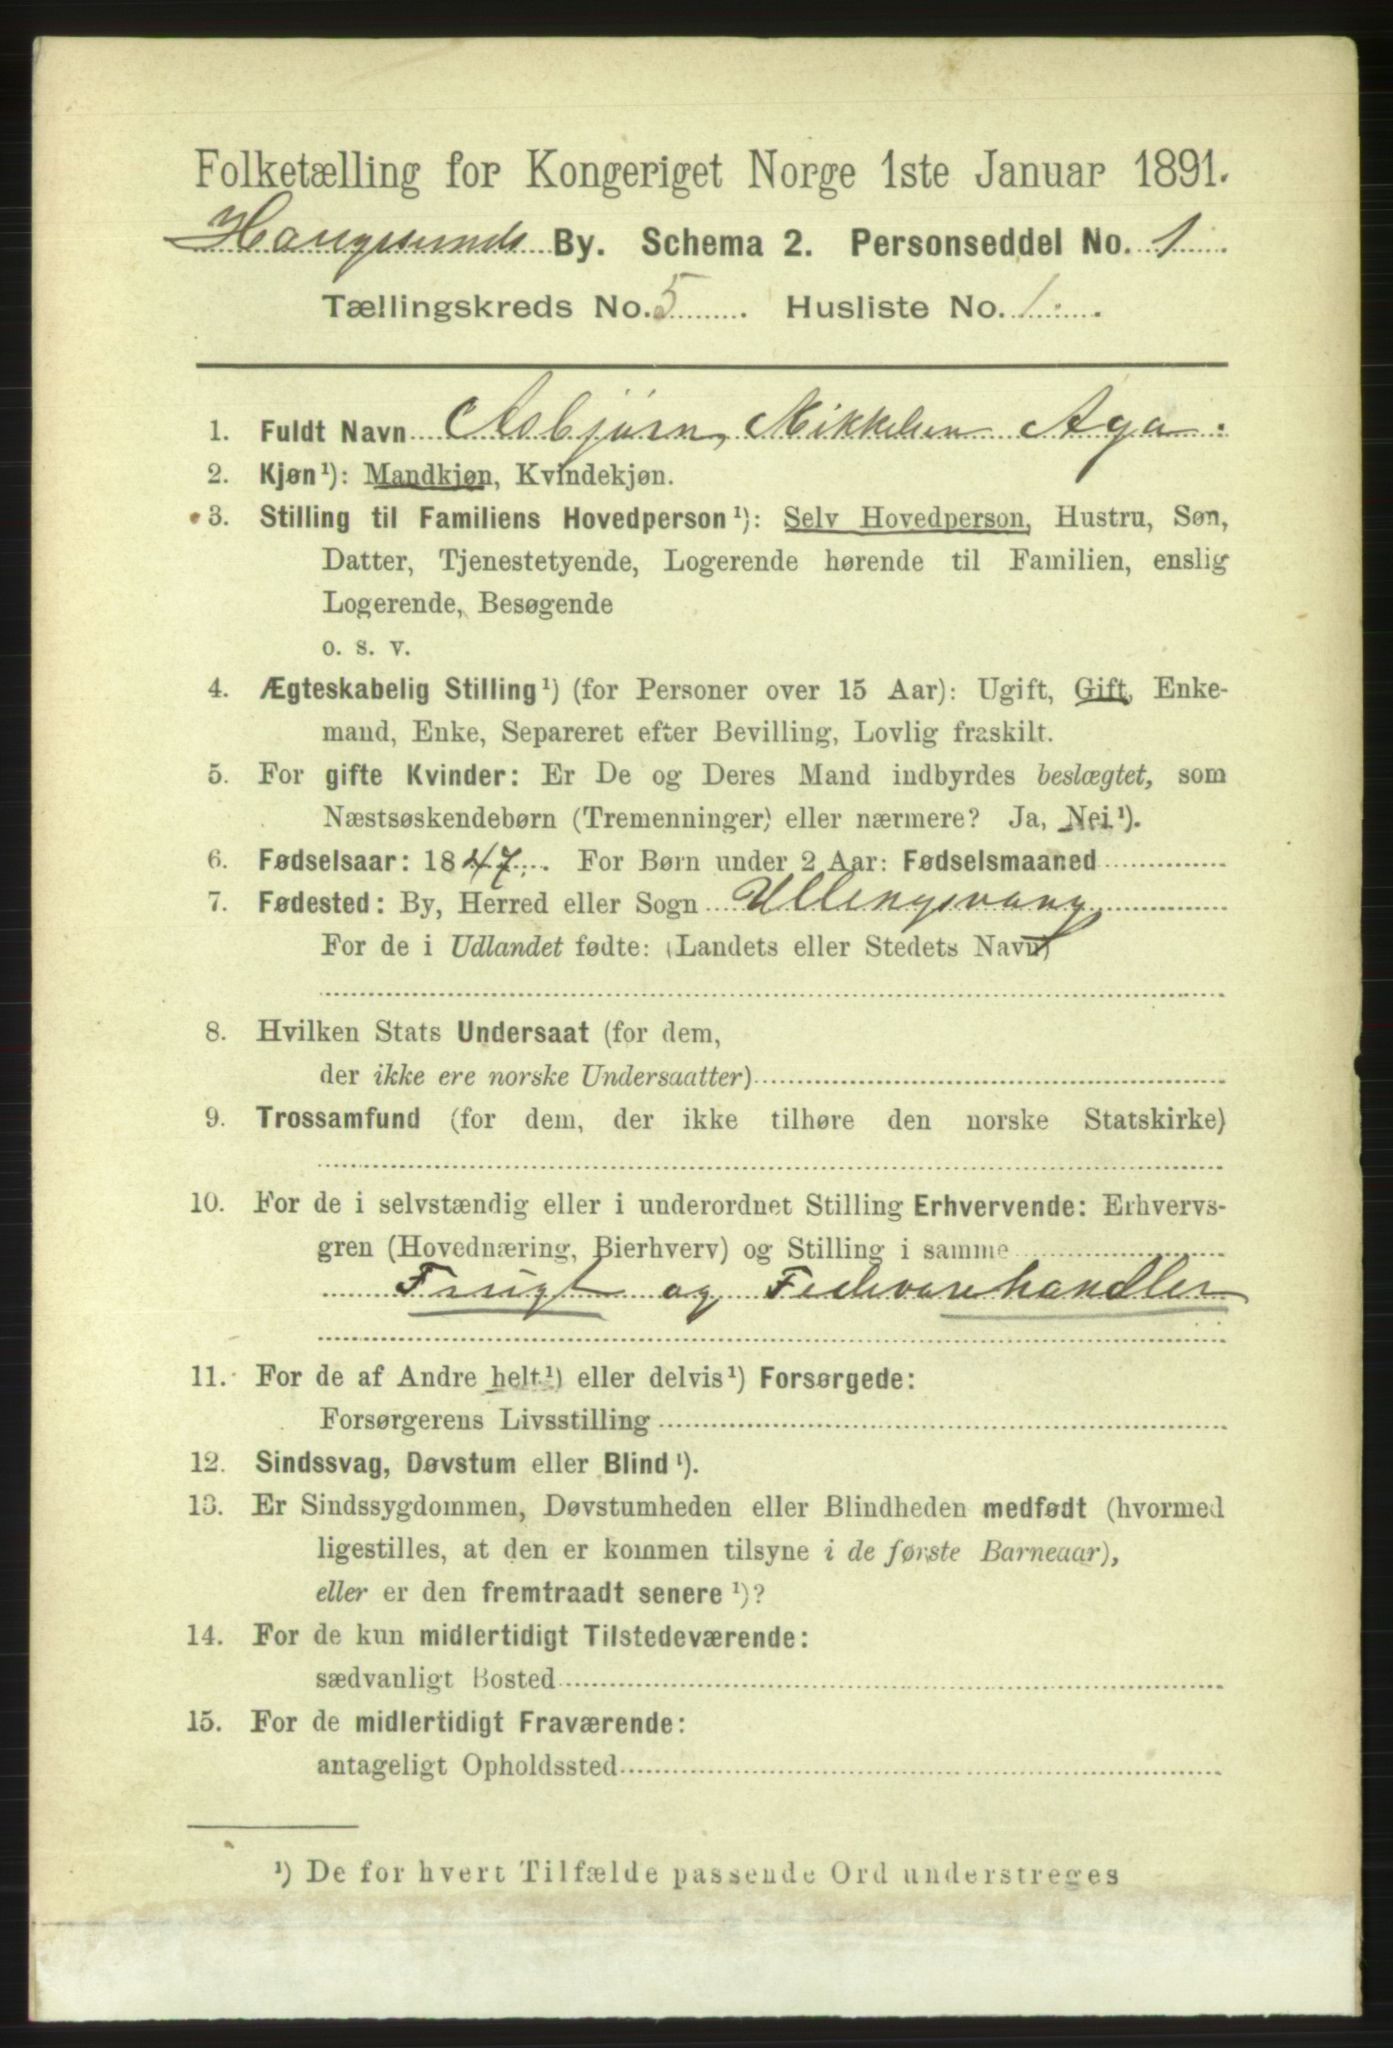 Folketælling for Kongeriget Norge 1ste Januar 1891.
Haugesunds By. Schema 2. Personseddel No. 1
Tællingskreds No. 5. Husliste No. 1.
1. Fuldt Navn Asbjørn Mikkelsen Aga.
2. Kjøn¹): Mandkjøn, Kvindekjøn.
3. Stilling til Familiens Hovedperson¹): Selv Hovedperson, Hustru, Søn,
Datter, Tjenestetyende, Logerende hørende til Familien, enslig
Logerende, Besøgende
o. s. v.
4. Ægteskabelig Stilling¹) (for Personer over 15 Aar): Ugift, Gift, Enke-
mand, Enke, Separeret efter Bevilling, Lovlig fraskilt.
5. For gifte Kvinder: Er De og Deres Mand indbyrdes beslægtet, som
Næstsøskendebørn (Tremenninger) eller nærmere? Ja, Nei¹).
6. Fødselsaar: 1847. For Børn under 2 Aar: Fødselsmaaned
7. Fødested: By, Herred eller Sogn Ullengsvang
For de i Udlandet fødte: (Landets eller Stedets Navn)
8. Hvilken Stats Undersaat (for dem,
der ikke ere norske Undersaatter)
9. Trossamfund (for dem, der ikke tilhøre den norske Statskirke)
10. For de i selvstændig eller i underordnet Stilling Erhvervende: Erhvervs-
gren (Hovednæring, Bierhverv) og Stilling i samme
Frugt og Fedevarehandler
11. For de af Andre helt¹) eller delvis¹) Forsørgede:
Forsørgerens Livsstilling
12. Sindssvag, Døvstum eller Blind¹).
13. Er Sindssygdommen, Døvstumheden eller Blindheden medfødt (hvormed
ligestilles, at den er kommen tilsyne i de første Barneaar),
eller er den fremtraadt senere¹)?
14. For de kun midlertidigt Tilstedeværende:
sædvanligt Bosted
15. For de midlertidigt Fraværende:
antageligt Opholdssted
¹) De for hvert Tilfælde passende Ord understreges